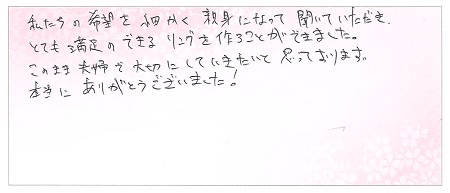 私たちの希望を細かく親身になって聞いていただき、
とても満足のできるリングを作ることができました。
このまま夫婦で大切にしていきたいと思っております。
本当にありがとうございました!